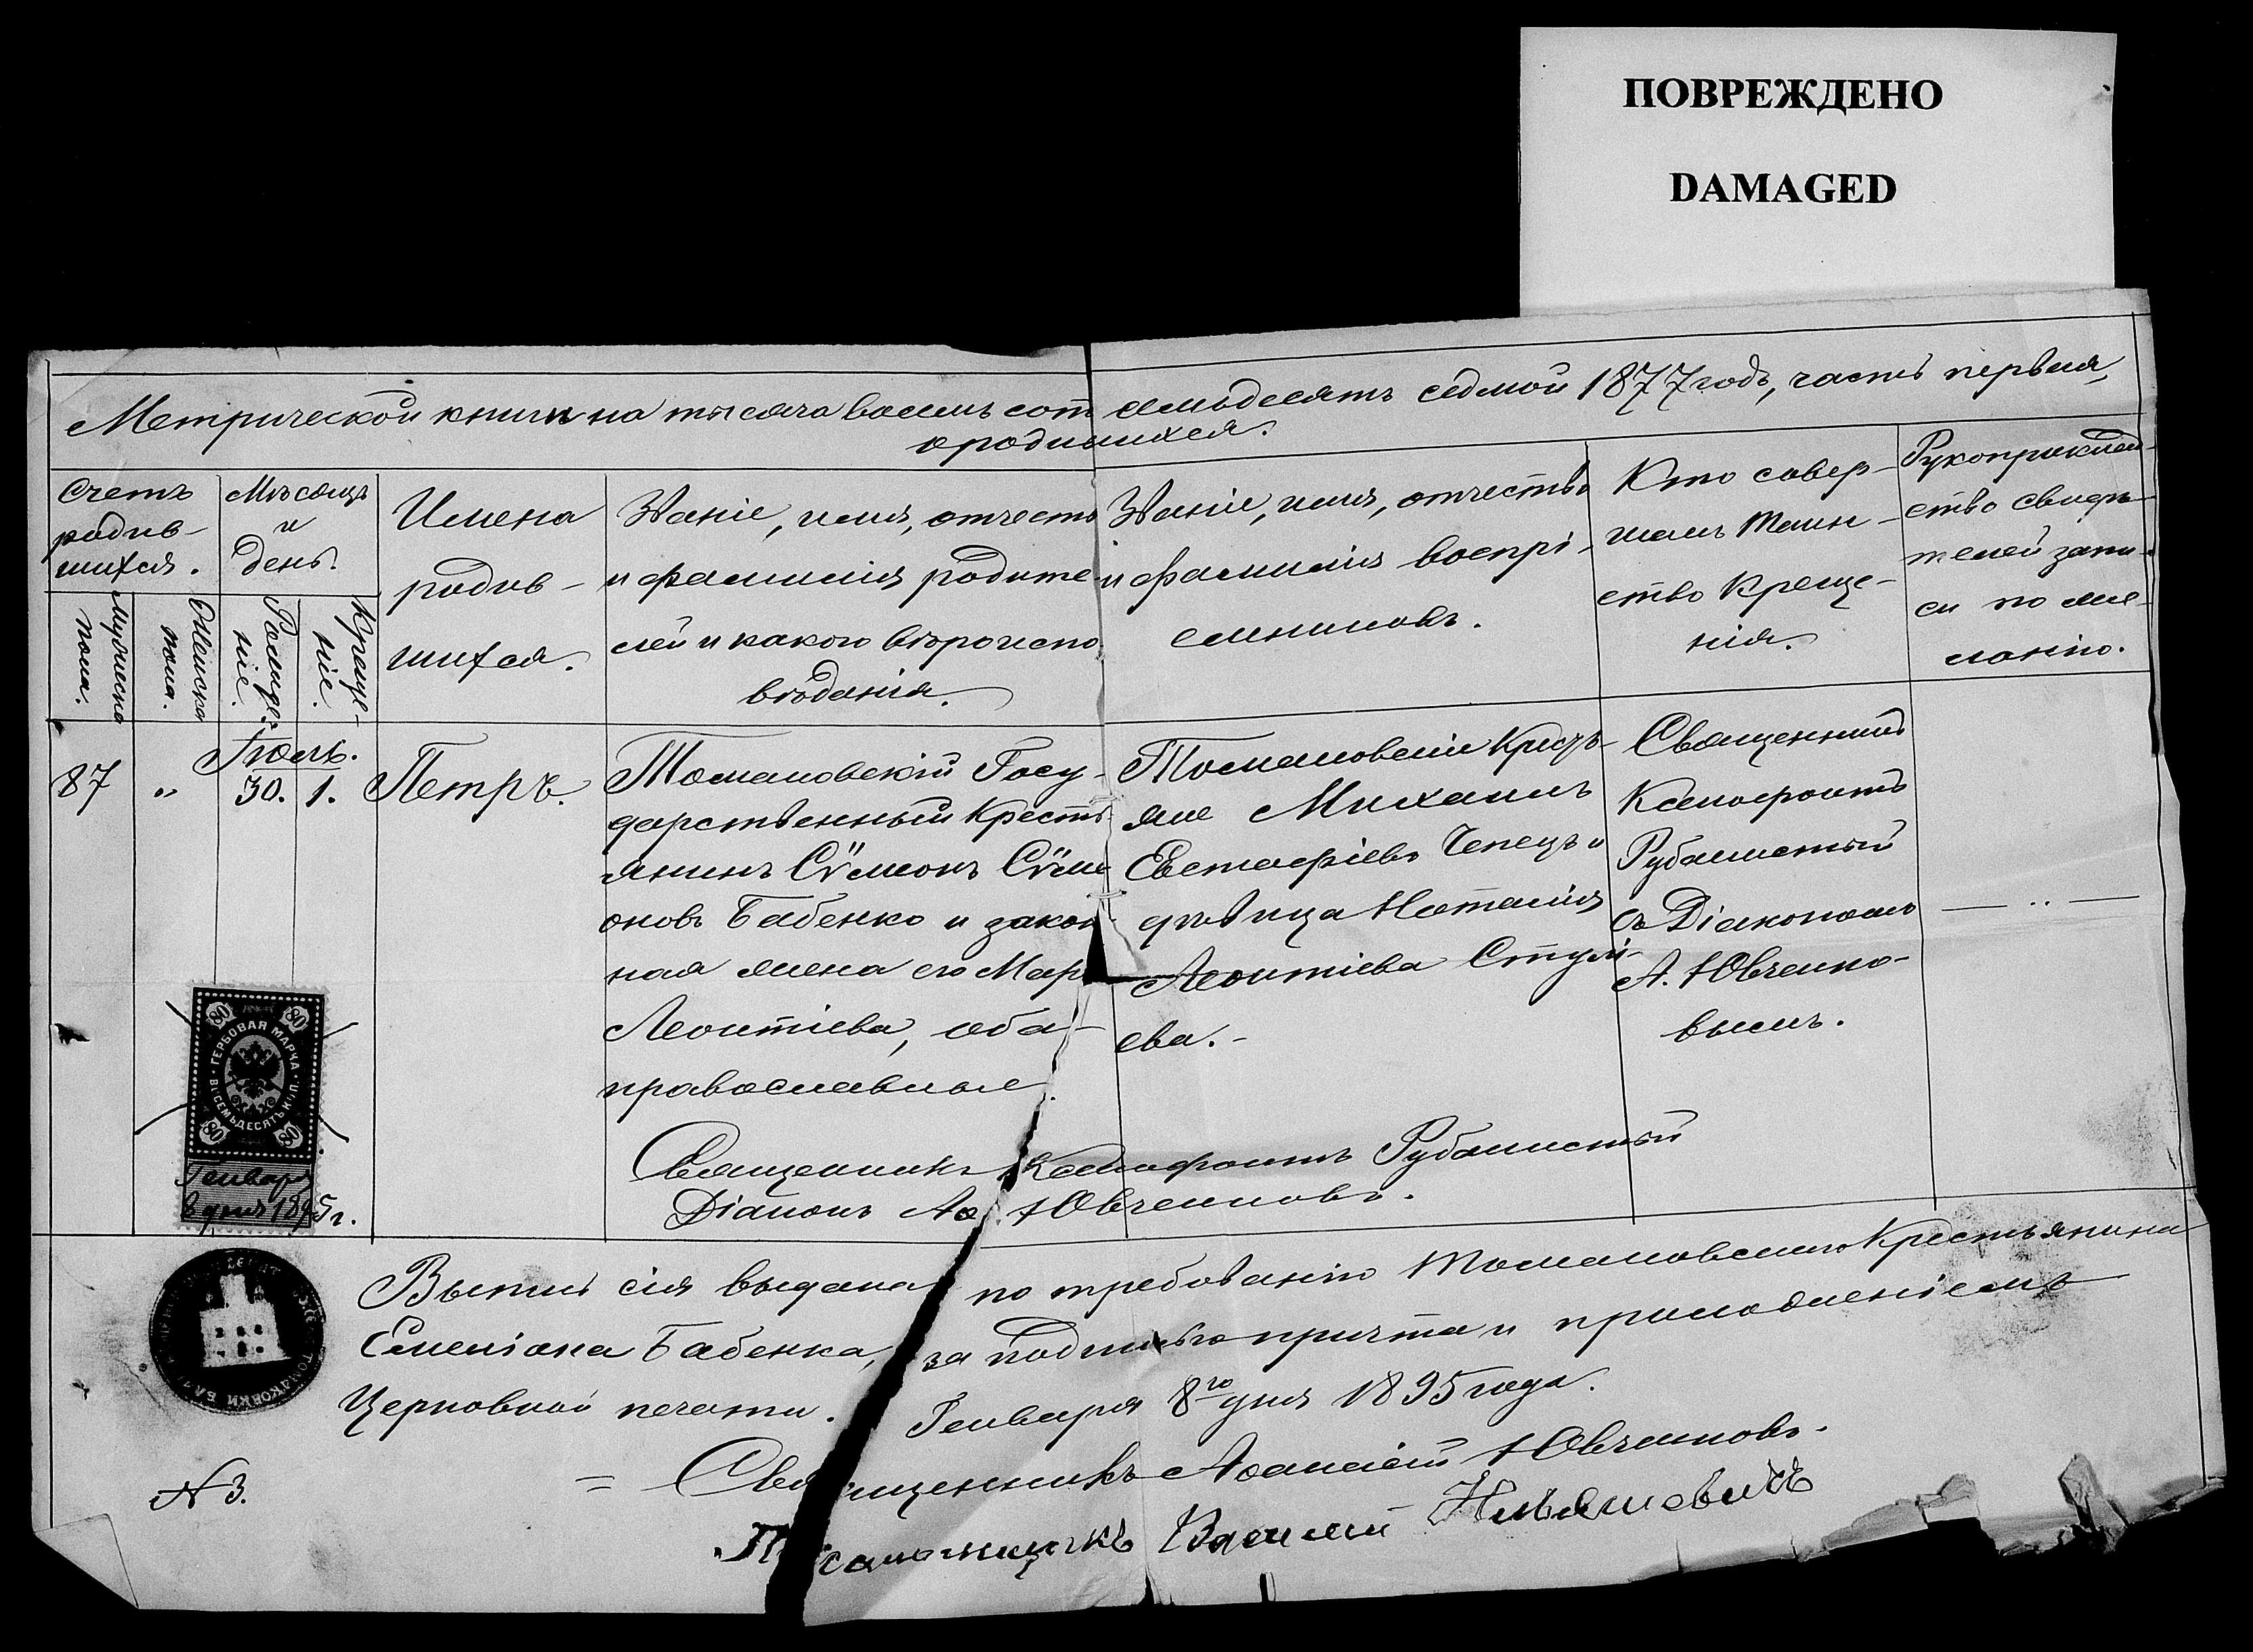 ПОВРЕЖДЕНО
DAMAGED
Метрической книги на тысяча восемь сотъ семьдесятъ седмой 1877 годъ, часть первая,
о родившихся.
Счетъ
родив-
шихся.
Мужеска
пола.
Женска
пола.
Мѣсяцъ
и
день.
Рожде-
ніе.
Креще-
ніе.
Имена
родив-
шихся.
Званіе, имя, отчество
и фамилія родите-
лей и какого вѣроиспо
вѣданія.
Званіе, имя, отчество
и фамилія воспрі-
емниковъ.
Кто совер-
шалъ таин-
ство креще-
нія.
Рукоприклад-
ство свидѣ-
телей запи-
си по же-
ланію.
87
"
Іюль.
30. 1.
Петръ.
Томаковскій Госу-
дарственный Кресть-
янинъ Сѵмеонъ Сѵме
оновъ Бабенко и закон
ная жена его Мар
Леонтіева, оба
православные.
Томаковскіе Крестъ-
яне Михаилъ
Евстафіевъ Чепецъ и
дѣвица Наталія
Леонтіева Стул
ева.-
Священникъ
Ксенофонтъ
Рубашистый
съ Діакономъ
А. Ювченко-
вымъ.
— .. —
Священникъ Ксенофонтъ Рубашистый
Діаконъ Аѳ. Ювченковъ.
80 80
ГЕРБОВАЯ МАРКА
ВОСЕМЬДЕСЯТЪ КОП.
80 80
Генваря
8 дня 1895 г.
Выпись сія выдана по требованію Томаковскаго Крестьянина
Емеліана Бабенка, за подписью причта и приложеніемъ
Церковной печати. Генваря 8го дня 1895 года.
№ 3.
= Священникъ Аѳанасій Ювченковъ.
Псаломщикъ Василій Ильяшевичъ